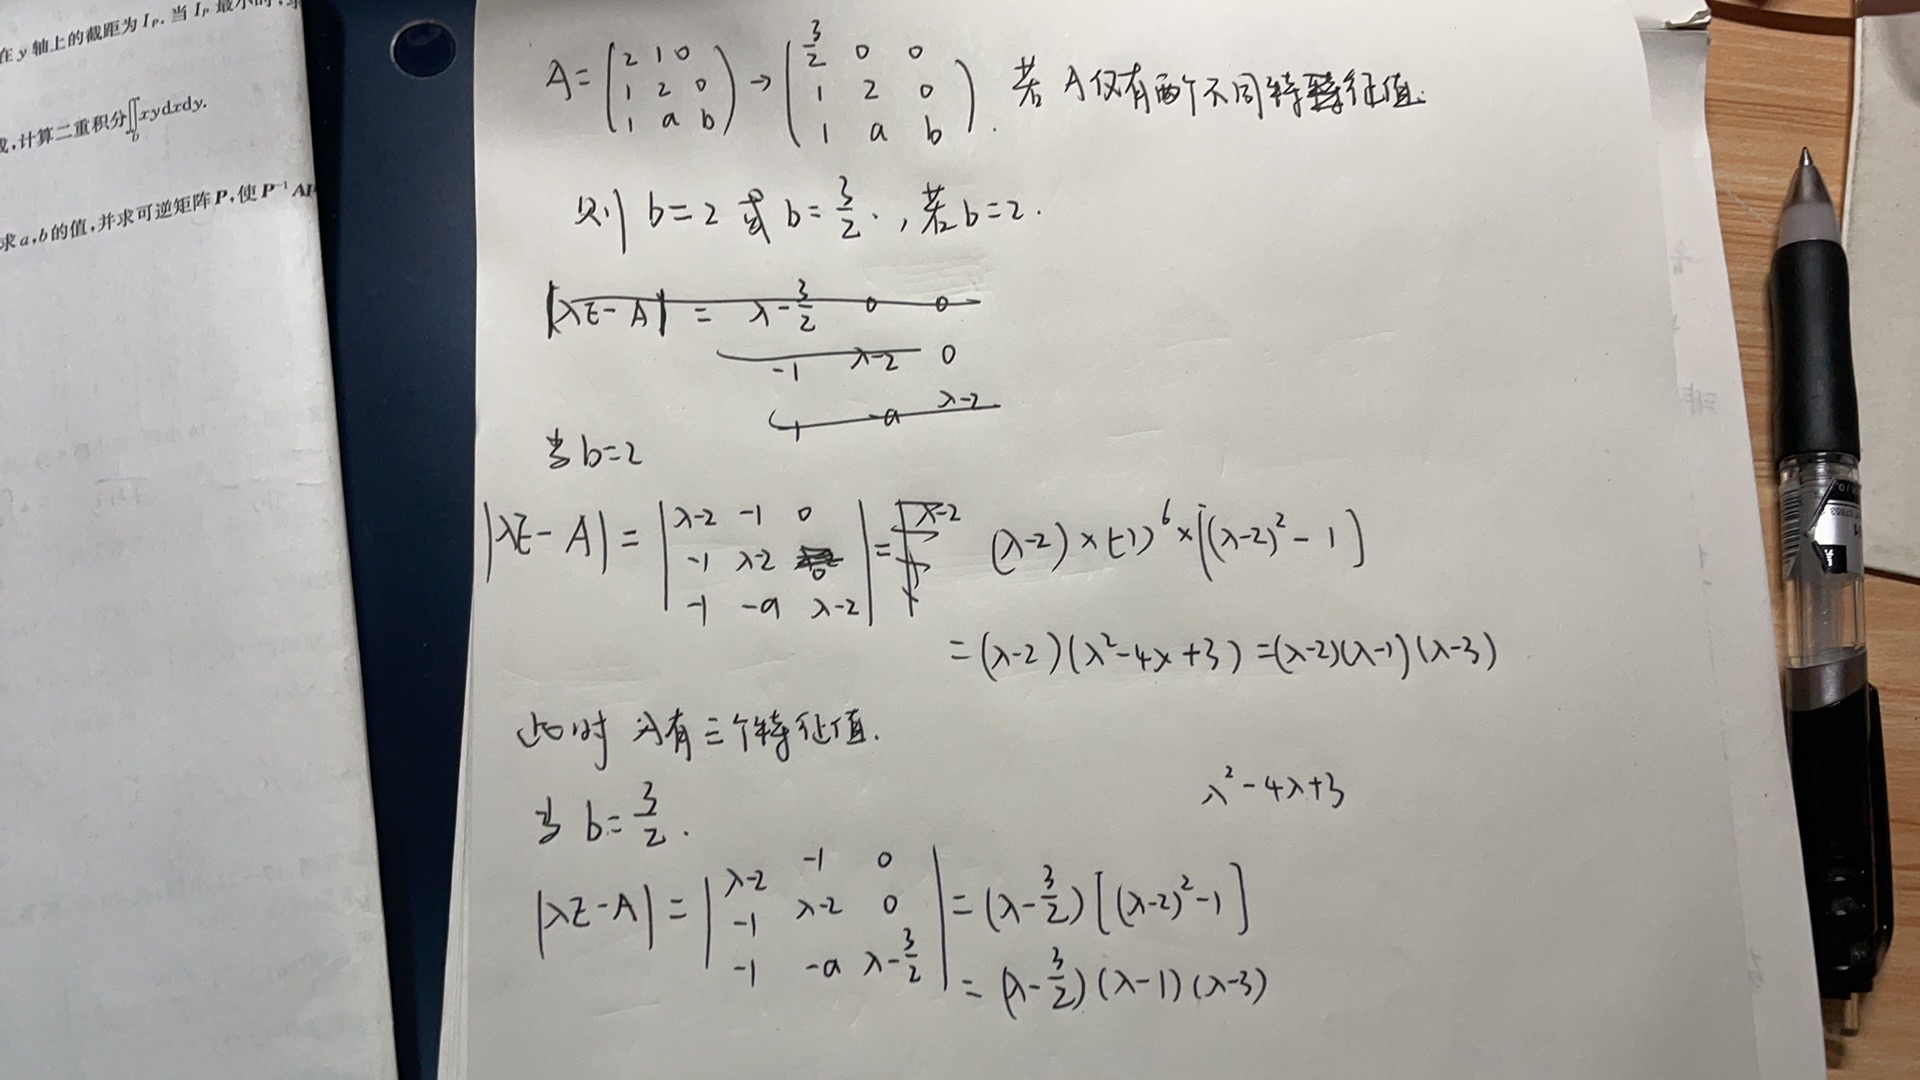 在 y 轴上的截距为 I_P. 当 I_P 最小时, 求
成, 计算二重积分∬_D xydxdy.
求 a, b 的值, 并求可逆矩阵 P, 使 P⁻¹AP
A = (2 1 0; 1 2 0; 1 a b) → (3/2 0 0; 1 2 0; 1 a b). 若 A仅有两个不同特征值.
则 b=2 或 b=3/2., 若b=2.
|λE-A| = λ-3/2 0 0
-1 λ-2 0
-1 -a λ-2
当 b=2
|λE-A| = |λ-2 -1 0; -1 λ-2 0; -1 -a λ-2| = λ-2 (λ-2)×(-1)⁶×[(λ-2)²-1]
=(λ-2)(λ²-4x+3)=(λ-2)(λ-1)(λ-3)
此时 A有三个特征值.
λ²-4λ+3
当 b=3/2.
|λE-A| = |λ-2 -1 0; -1 λ-2 0; -1 -a λ-3/2| = (λ-3/2)[(λ-2)²-1]
= (λ-3/2)(λ-1)(λ-3)